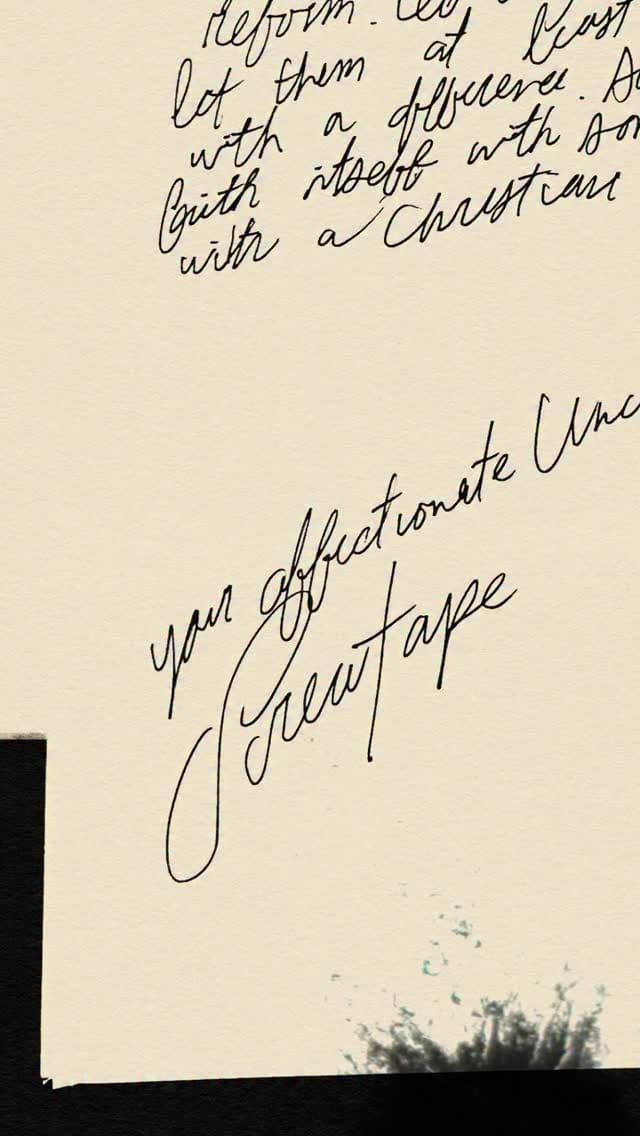 Reform.
let them at least
with a difference.
faith itself with
with a Christian
your affectionate Unc
Screwtape